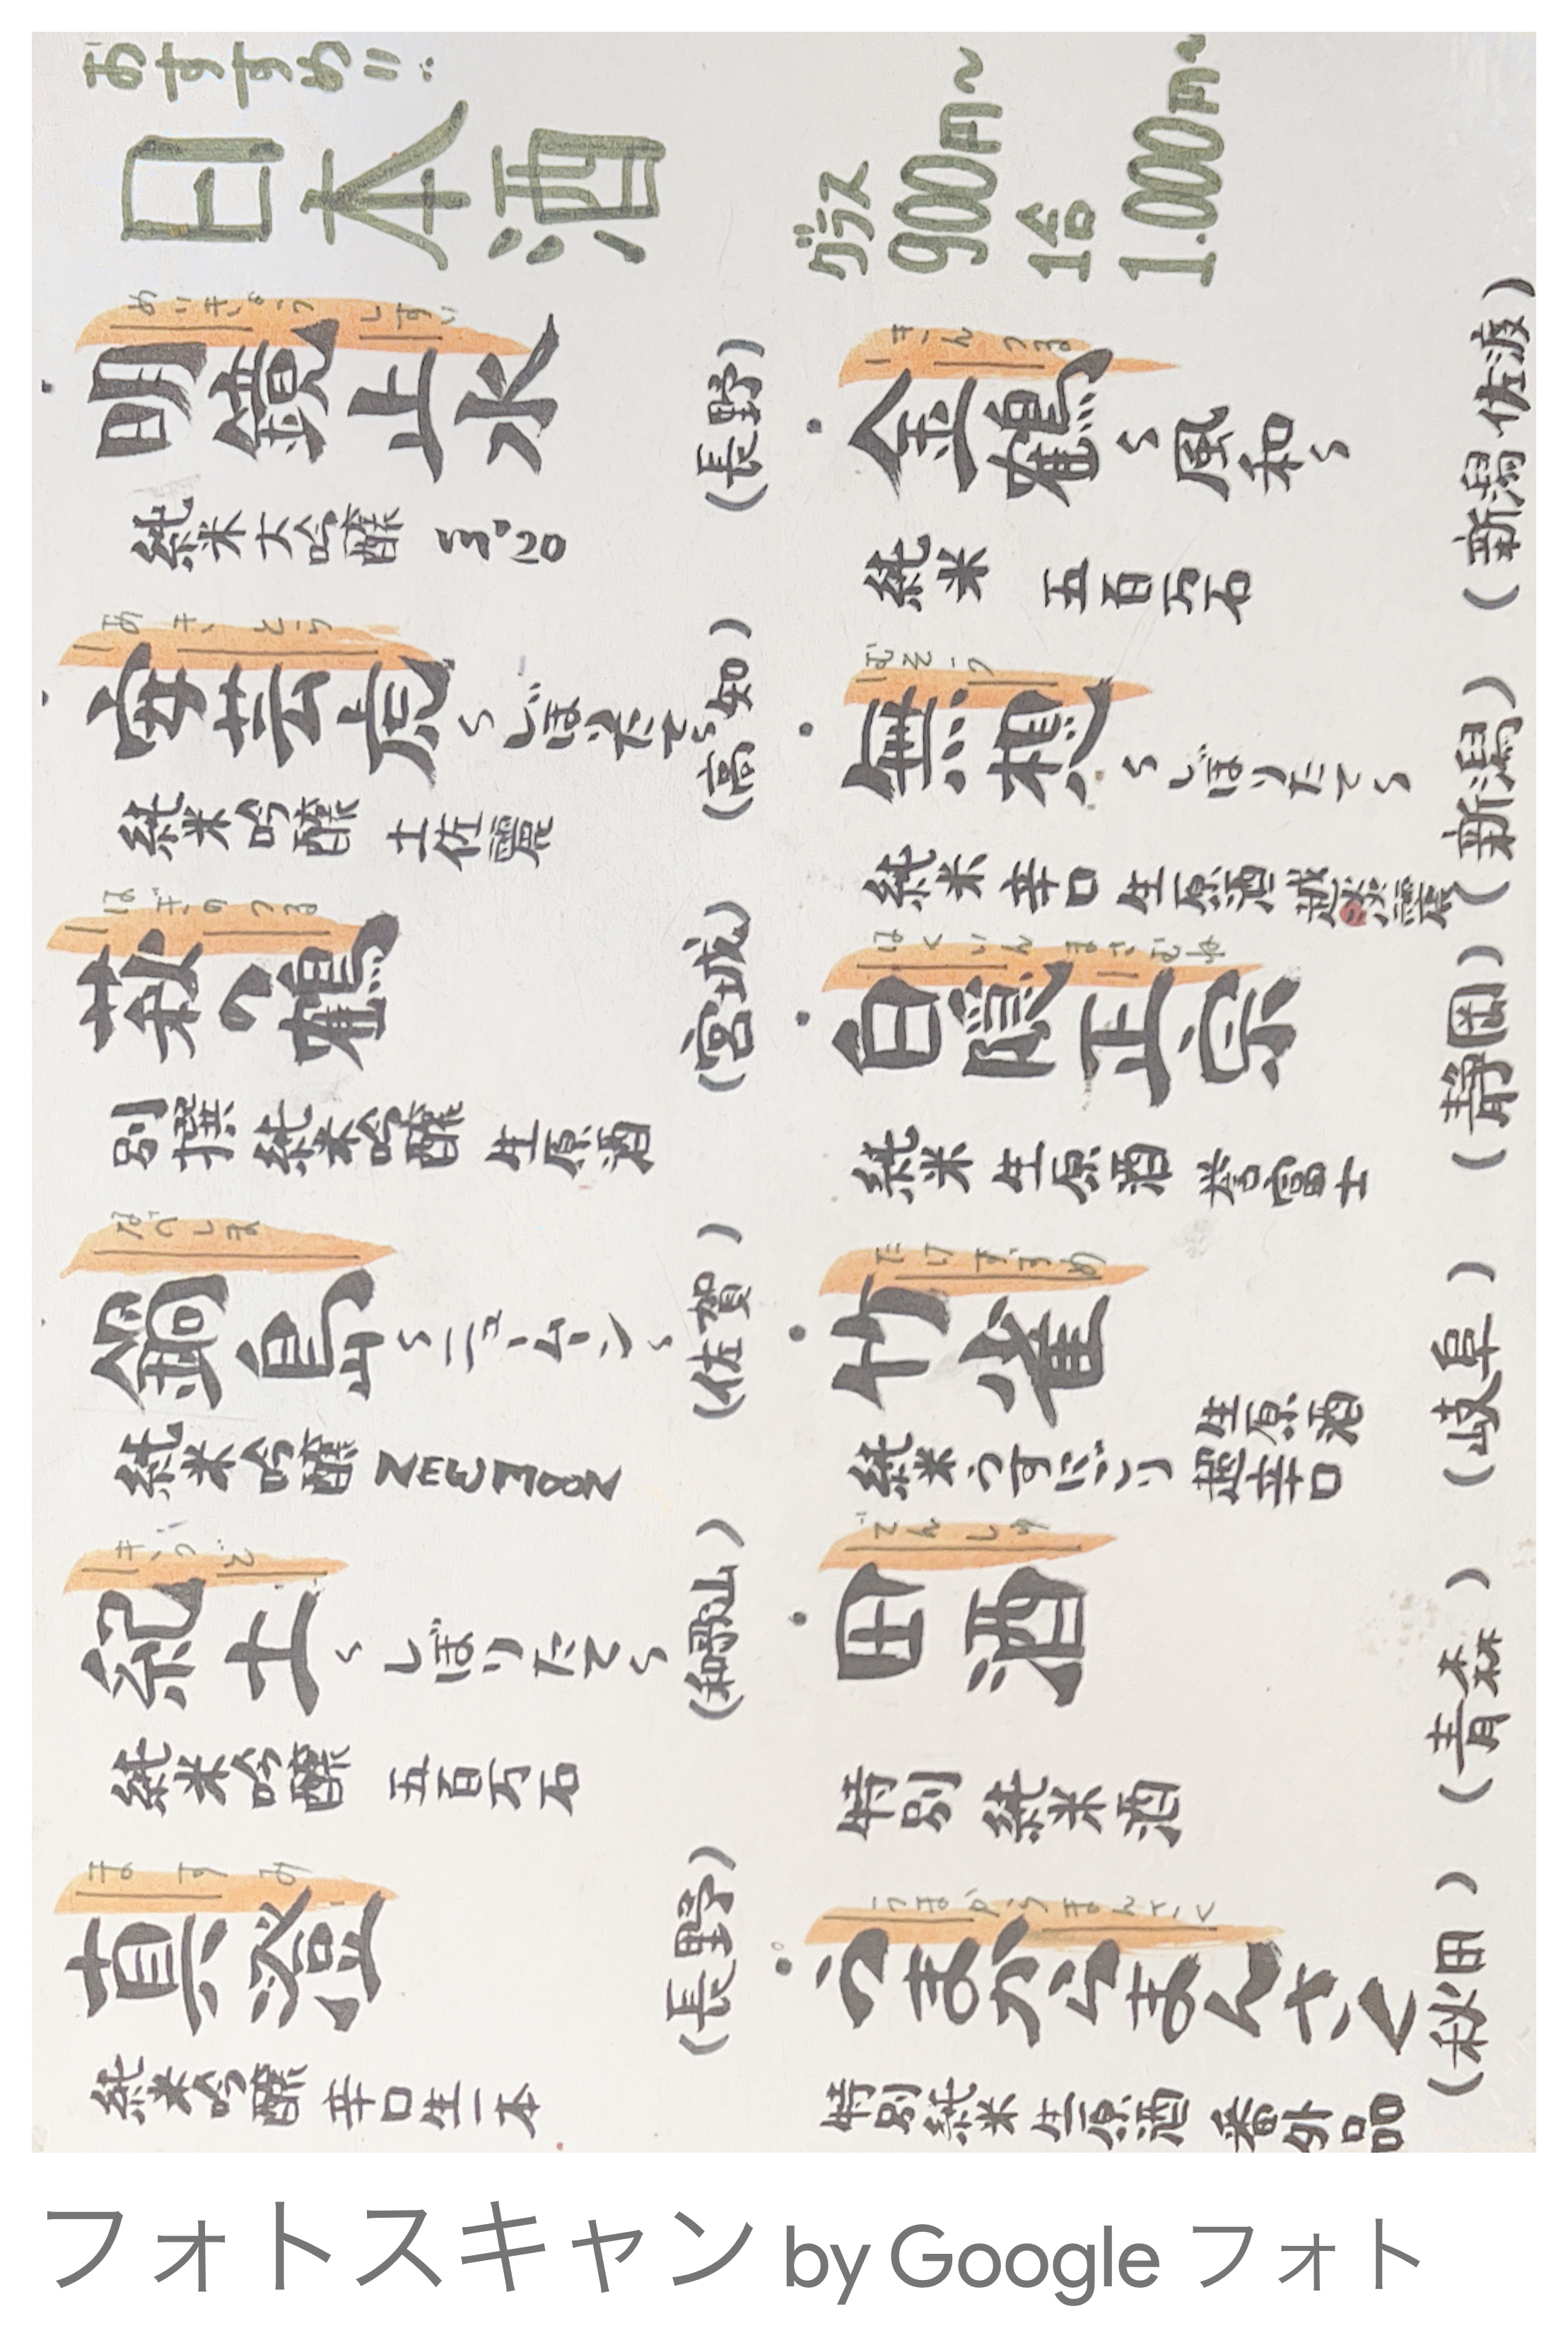 おすすめ!!
日本酒
グラス
900円〜
1合
1.000円〜
めいきょうしすい
明鏡止水
(長野)
純米大吟醸
あきとら
安芸虎〜しぼりたて〜
(高知)
純米吟醸 土佐麗
はぎのつる
萩の鶴
(宮城)
別撰 純米吟醸 生原酒
なべしま
鍋島〜ニュームーン〜
(佐賀)
純米吟醸 New Moon
きっど
紀土〜しぼりたて〜
(和歌山)
純米吟醸 五百万石
ますみ
真澄
(長野)
純米吟醸 辛口生一本
きんつる
金鶴〜風和〜
(新潟・佐渡)
純米 五百万石
むそう
無想〜しぼりたて〜
(新潟)
純米 辛口 生原酒 越淡麗
はくいん まさむね
白隠正宗
(静岡)
純米 生原酒 誉富士
たけすずめ
竹雀
(岐阜)
純米うすにごり 生原酒
超辛口
でんしゅ
田酒
(青森)
特別 純米酒
うまからまんさく
うまからまんさく
(秋田)
特別純米 生原酒 番外品
フォトスキャン by Google フォト